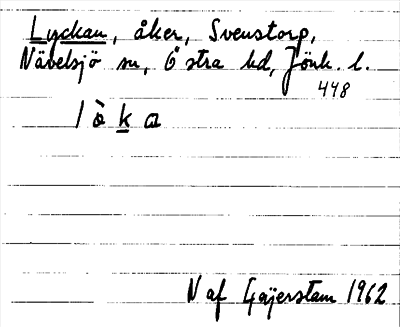 Lyckan, åker, Svenstorp,
Nävelsjö sn, Östra hd, Jönk. l.
448
lò̱ka
N af Geijerstam 1962